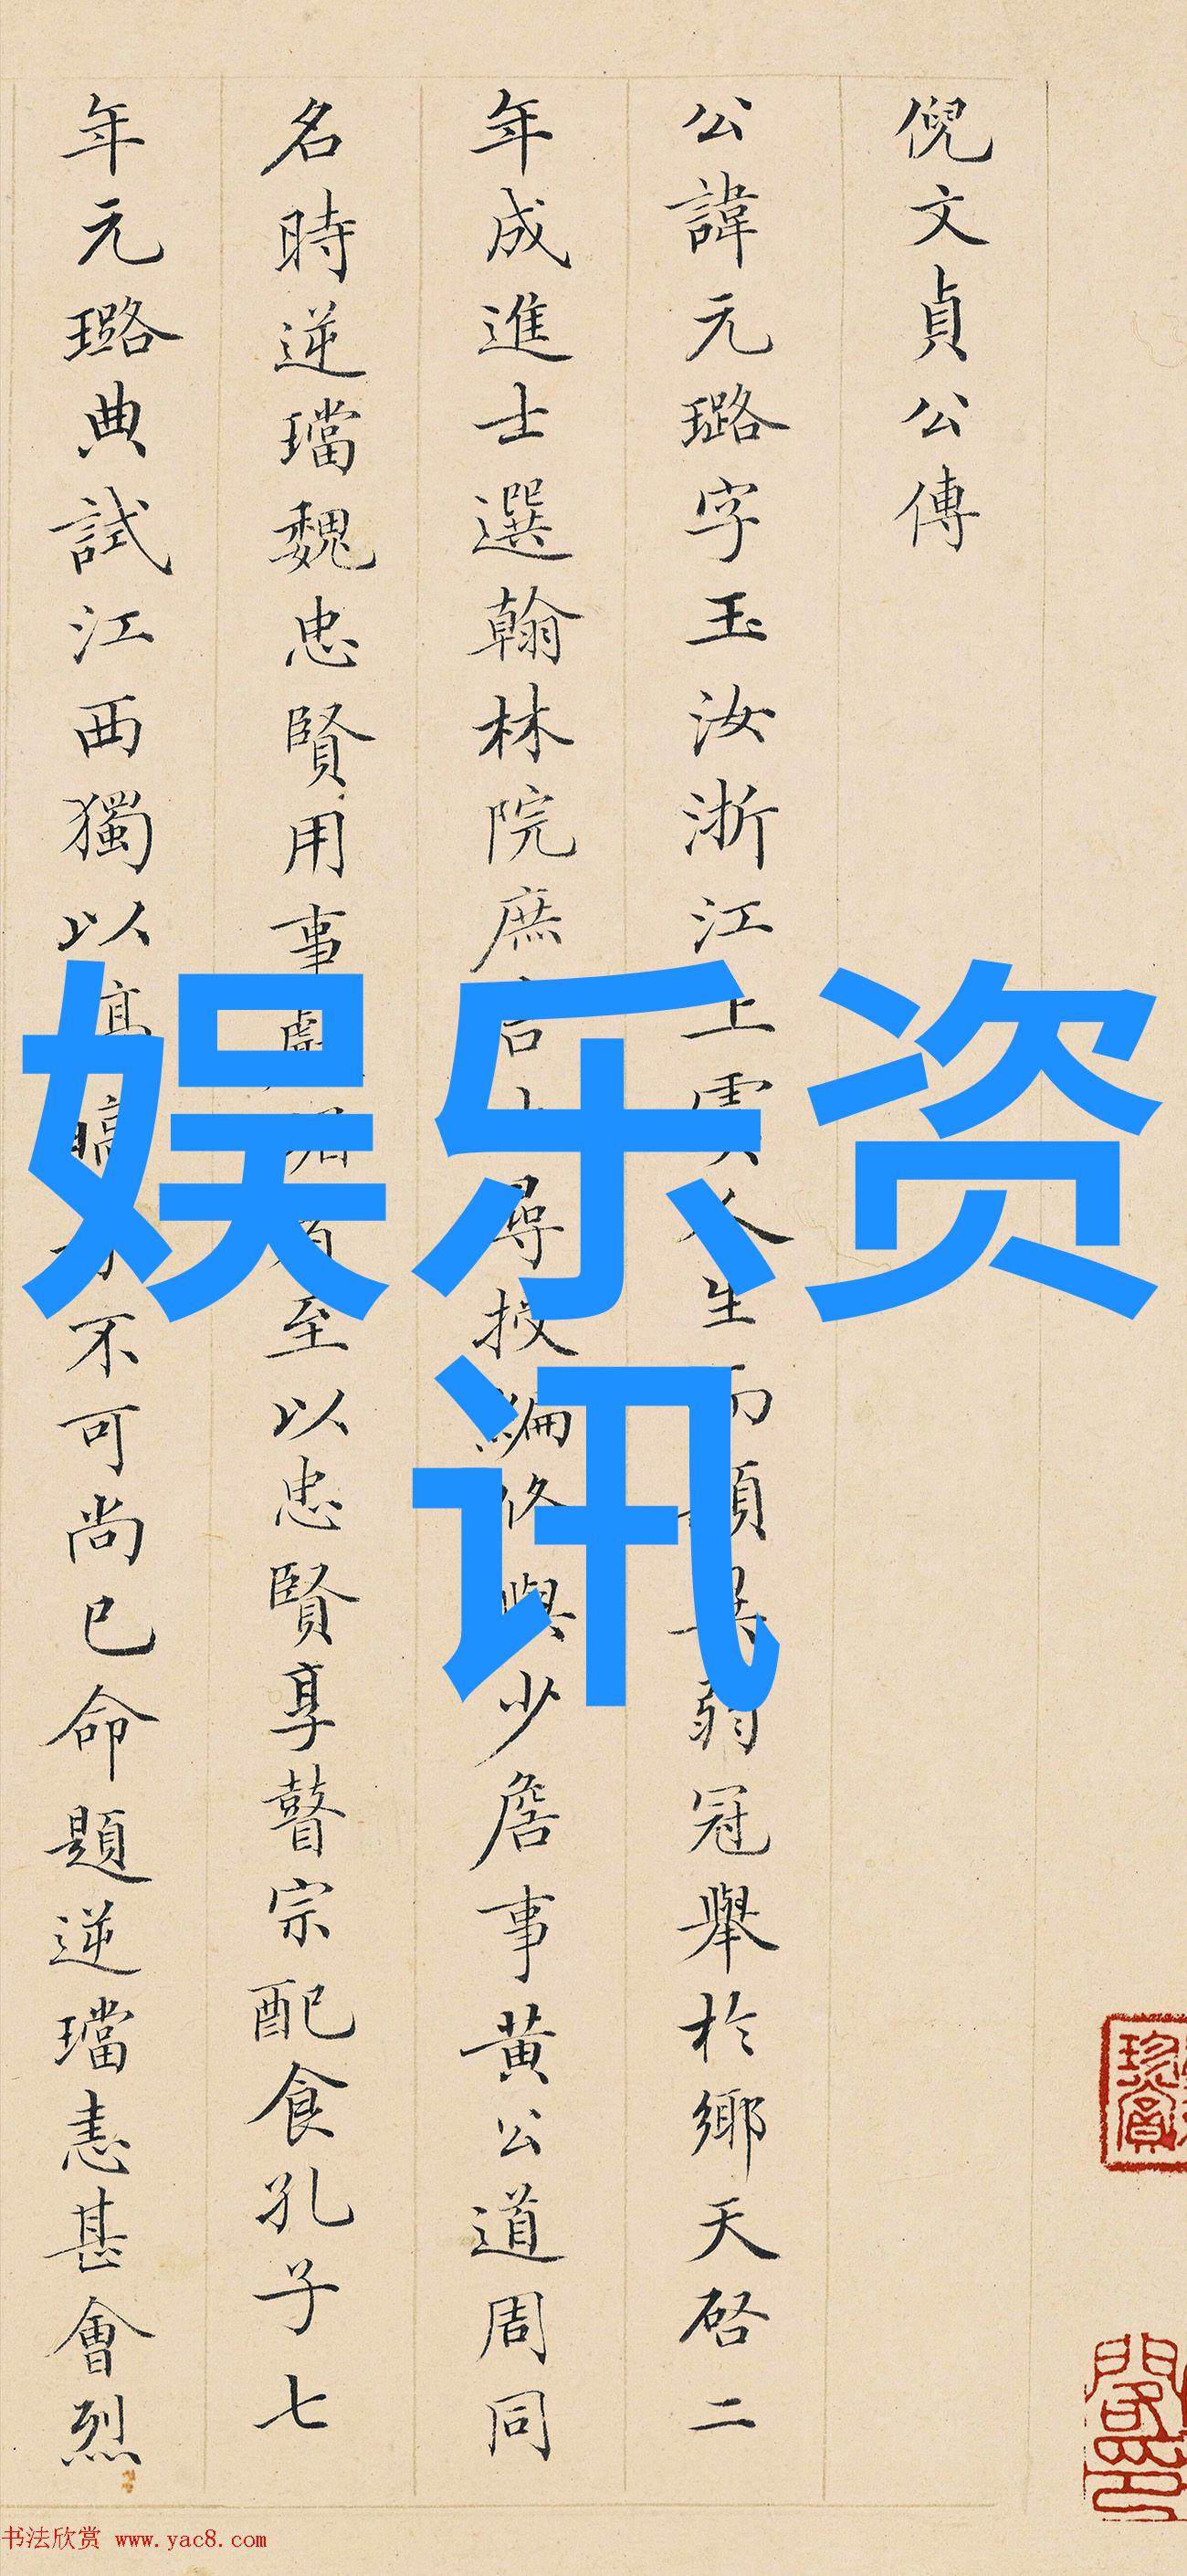 倪文貞公傳
公諱元璐字玉汝浙江上虞人生而穎異弱冠舉於鄉天啓二
年成進士選翰林院庶吉士尋授編修與少詹事黄公道周同
名時逆璫魏忠賢用事虐焰至以忠賢享瞽宗配食孔子七
年元璐典試江西獨以皜皜乎不可尚已命題逆璫恚甚會烈
娱乐资
讯
珍賞
书法欣赏 www.yac8.com